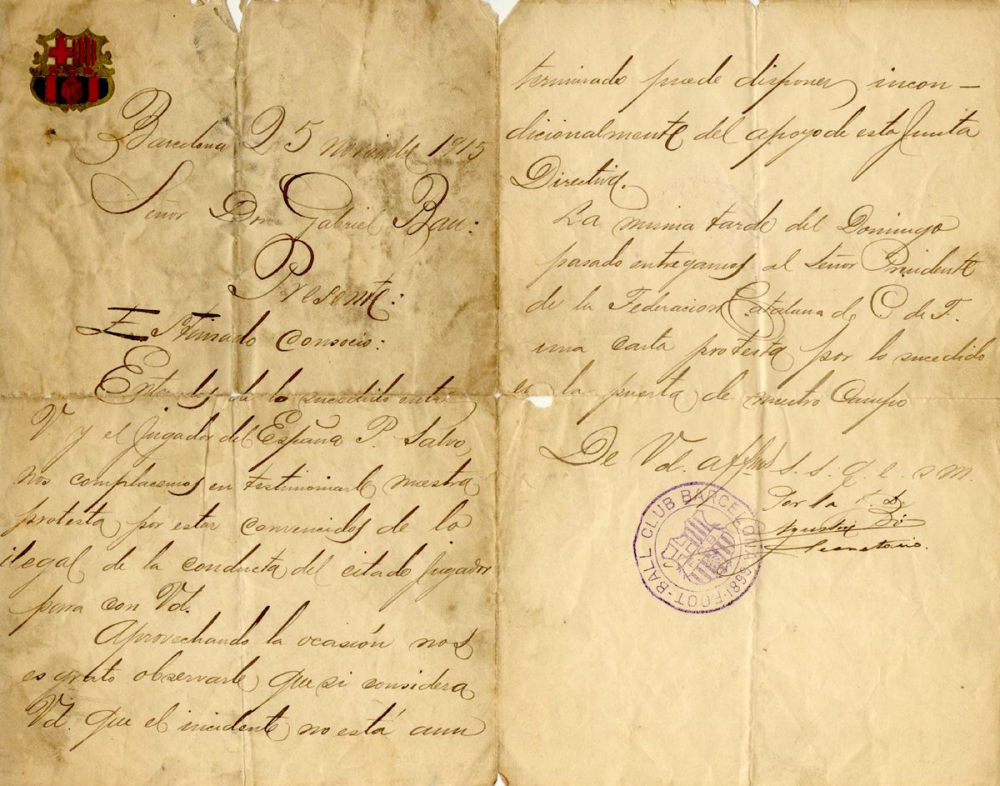 Barcelona 25 noviembre 1915
Señor Don Gabriel Bau:
Presente:
Estimado Consocio:
Enterados de lo sucedido entre
V y el jugador del España P. Salvo,
nos complacemos en testimoniarle nuestra
protesta por estar convencidos de lo
ilegal de la conducta del citado jugador
para con Vd.
Aprovechando la ocasión nos
es grato observarle que si considera
Vd. que el incidente no está aun
terminado puede disponer incon-
dicionalmente del apoyo de esta Junta
Directiva.
La misma tarde del Domingo
pasado entregamos al Señor Presidente
de la Federacion Catalana d. C de F.
una carta protesta por lo sucedido
en la puerta de nuestro Campo
De Vd. affmos s. s. q. e. s m.
Por la J. D.
Secretario.
FOOT-BALL CLUB BARCELONA 1899